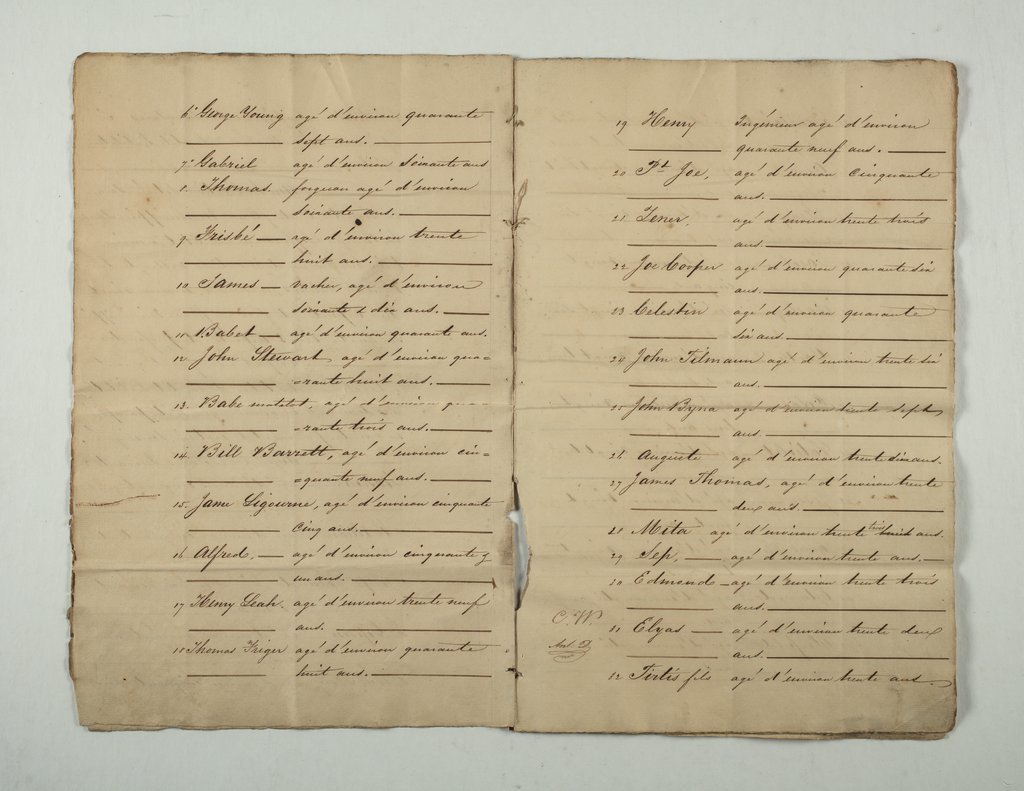 6° George Young agé d'environ quarante
sept ans.
7° Gabriel agé d'environ soixante ans
8. Thomas forgeron agé d'environ
soixante ans.
9 Frisbé agé d'environ trente
huit ans.
10 James vacher, agé d'environ
soixante & dix ans.
11 Babet agé d'environ quarante ans.
12 John Stewart agé d'environ qua=
=rante huit ans.
13. Babe matelot, agé d'environ qua=
=rante trois ans.
14. Bill Barrett, agé d'environ cin=
=quante neuf ans.
15. Jame Ligourne, agé d'environ cinquante
cinq ans.
16 Alfred, agé d'environ cinquante &
un ans.
17 Henry Leah. agé d'environ trente neuf
ans.
18 Thomas Friger agé d'environ quarante
huit ans.
19 Henry Ingénieur agé d'environ
quarante neuf ans.
20 Pt Joe, agé d'environ Cinquante
ans.
21 Tener, agé d'environ trente trois
ans.
22 Joe Cooper agé d'environ quarante six
ans.
23 Celestin agé d'environ quarante
six ans.
24 John Tilmann agé d'environ trente six
ans.
25 John Byna agé d'environ trente sept
ans.
26 Auguste agé d'environ trente six ans.
27 James Thomas, agé d'environ trente
deux ans.
28 Mita agé d'environ trente trois huit ans.
29 Sep, agé d'environ trente ans.
30 Edmond agé d'environ trente trois
ans.
C. W.
31 Elyas agé d'environ trente deux
ans.
32 Tirtis fils agé d'environ trente ans.